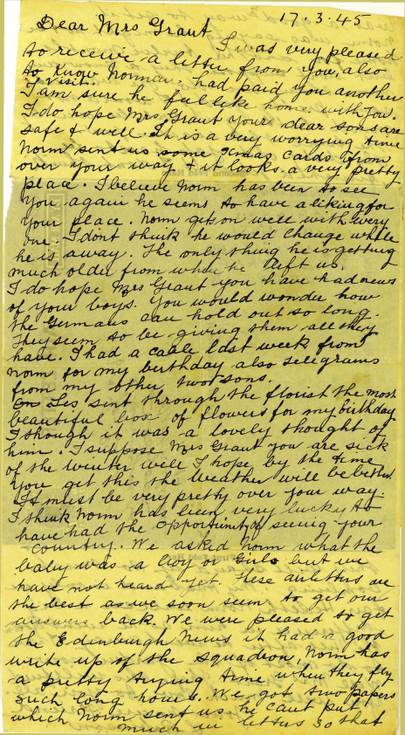 17.3.45
Dear Mrs Grant
I was very pleased
to receive a letter from you, also
to know Norman had paid you another
visit.
I am sure he felt at home with you.
I do hope Mrs Grant your dear sons are
safe & well. It is a very worrying time
Norm sent us some Xmas cards from
over your way & it looks a very pretty
place. I believe Norm has been to see
you again he seems to have a liking for
your place. Norm gets on well with every
one. I dont think he would change while
he is away. The only thing he is getting
much older from when he left us.
I do hope Mrs Grant you have had news
of your boys. You would wonder how
the Germans can hold out so long.
They seem to be giving them all they
have. I had a cable last week from
Norm for my birthday also telegrams
from my other two sons.
Les sent through the florist the most
beautiful box of flowers for my birthday
I though it was a lovely thought of
him. I suppose Mrs Grant you are sick
of the winter well I hope by the time
you get this the weather will be better
It must be very pretty over your way.
I think Norm has been very lucky to
have had the opportunity of seeing your
country. We asked Norm what the
baby was a boy or girl but we
have not heard yet. These airletters are
the best as we soon seem to get our
answers back. We were pleased to get
the Edinburgh News it had a good
write up of the squadron, Norm has
a pretty trying time when they fly
such long hours. We got two papers
which Norm sent us he cant put
much in letters so that